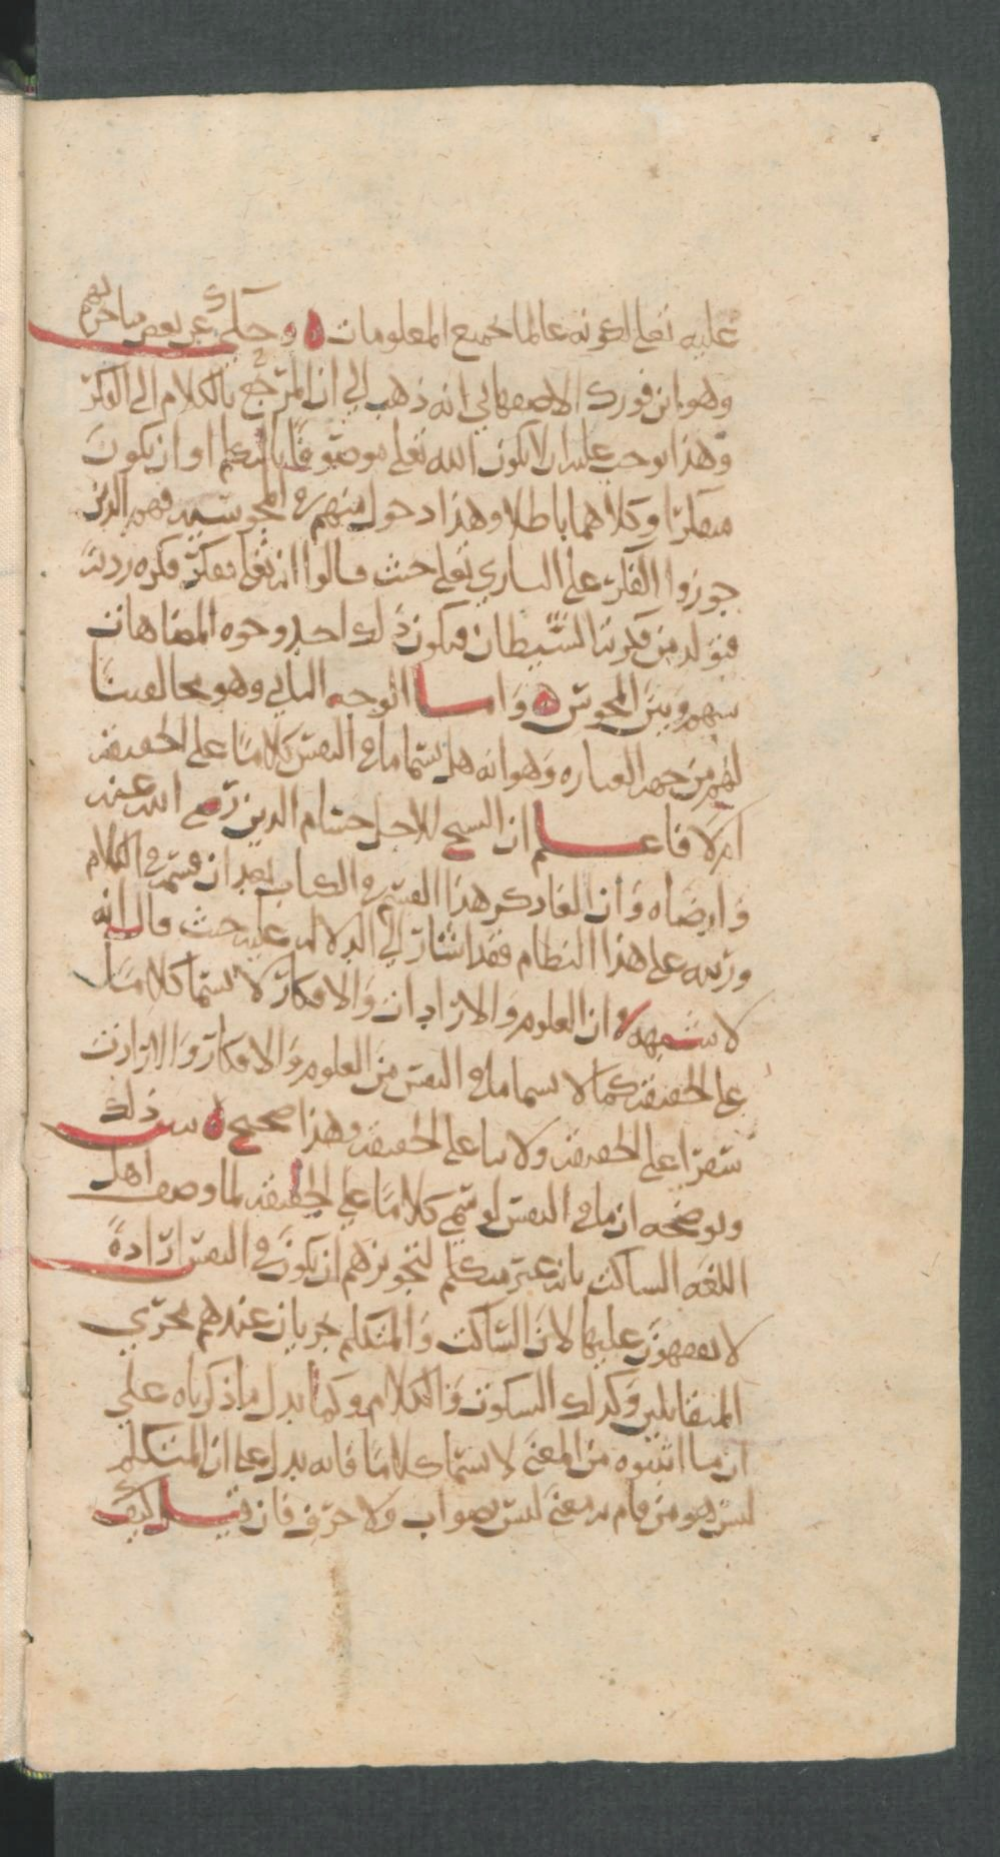 عليه تعلى لكونه عالما بجميع المعلومات ه وحكي عن بعض متاخريهم
وهو ابن فورك الاصفهاني انه ذهب الى ان المرجع بالكلام الى الفكر
وهذا يوجب عليه ان لا يكون الله تعلى موصوفا بالتكلم او ان يكون
متفكرا وكلاهما باطل وهذا دخول منهم في المجوسيه فهم الذين
جوزوا الفكر على الباري تعلى حيث قالوا انه تعلى تفكر فكره رديه
فتولد من فكرته الشيطان فيكون ذلك احد وجوه المضاهات
بينهم وبين المجوس ه واما الوجه الثاني وهو مخالفتنا
لهم من جهه العباره وهو انه هل يسما ما في النفس كلاما على الحقيقه
ام لا فاعلم ان الشيخ الاجل حسام الدين رضي الله عنه
وارضاه وان الغا ذكر هذا القسم في الكتاب بعد ان قسم في الكلام
ورتبه على هذا النظام فقد اشار الى الدلاله عليه حيث قال انه
لا شبهه في ان العلوم والارادات والافكار لا تسما كلاما
على الحقيقه كما لا يسما ما في النفس من العلوم والافكار والارادت
شعرا على الحقيقه ولا بيا على الحقيقه وهذا صحيح ه يبين ذلك
ويوضحه ان ما في النفس لو سمي كلاما على الحقيقه لما وصف اهل
اللغه الساكت بانه غير متكلم لتجويزهم ان يكون في النفس اراده
لا يقفون عليها لان الساكت والمتكلم يجريان عندهم مجرى
المتقابلين وكذلك السكوت والكلام وكما يدل ما ذكرناه على
ان ما اثبتوه من المعنى لا يسما كلاما فانه يدل على ان المتكلم
ليس هو من قام به معنى ليس بصوات ولا حرف فان قيل كيف